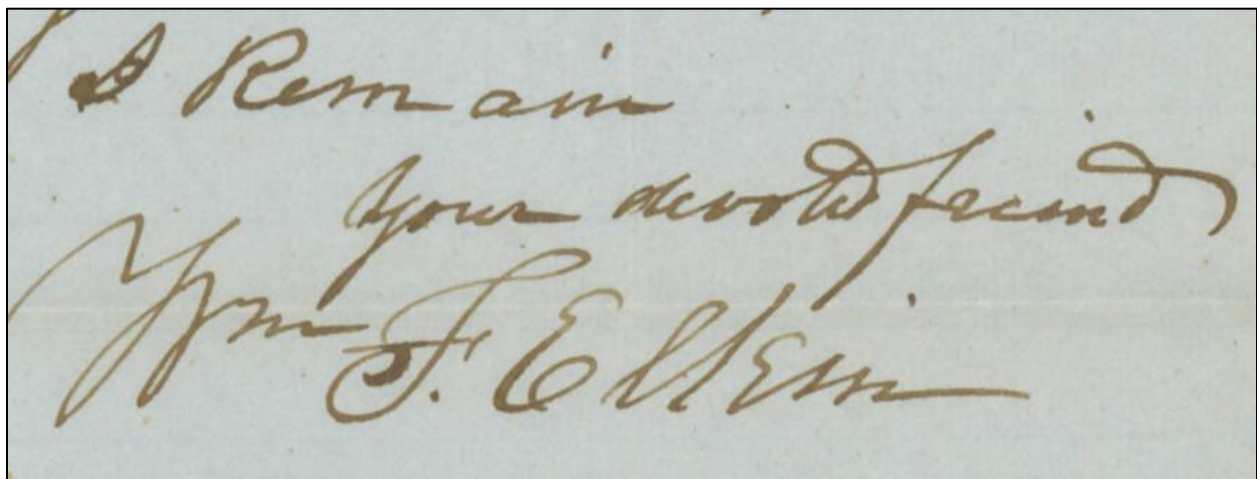 I Remain
your devoted friend
Wm F. Elkin